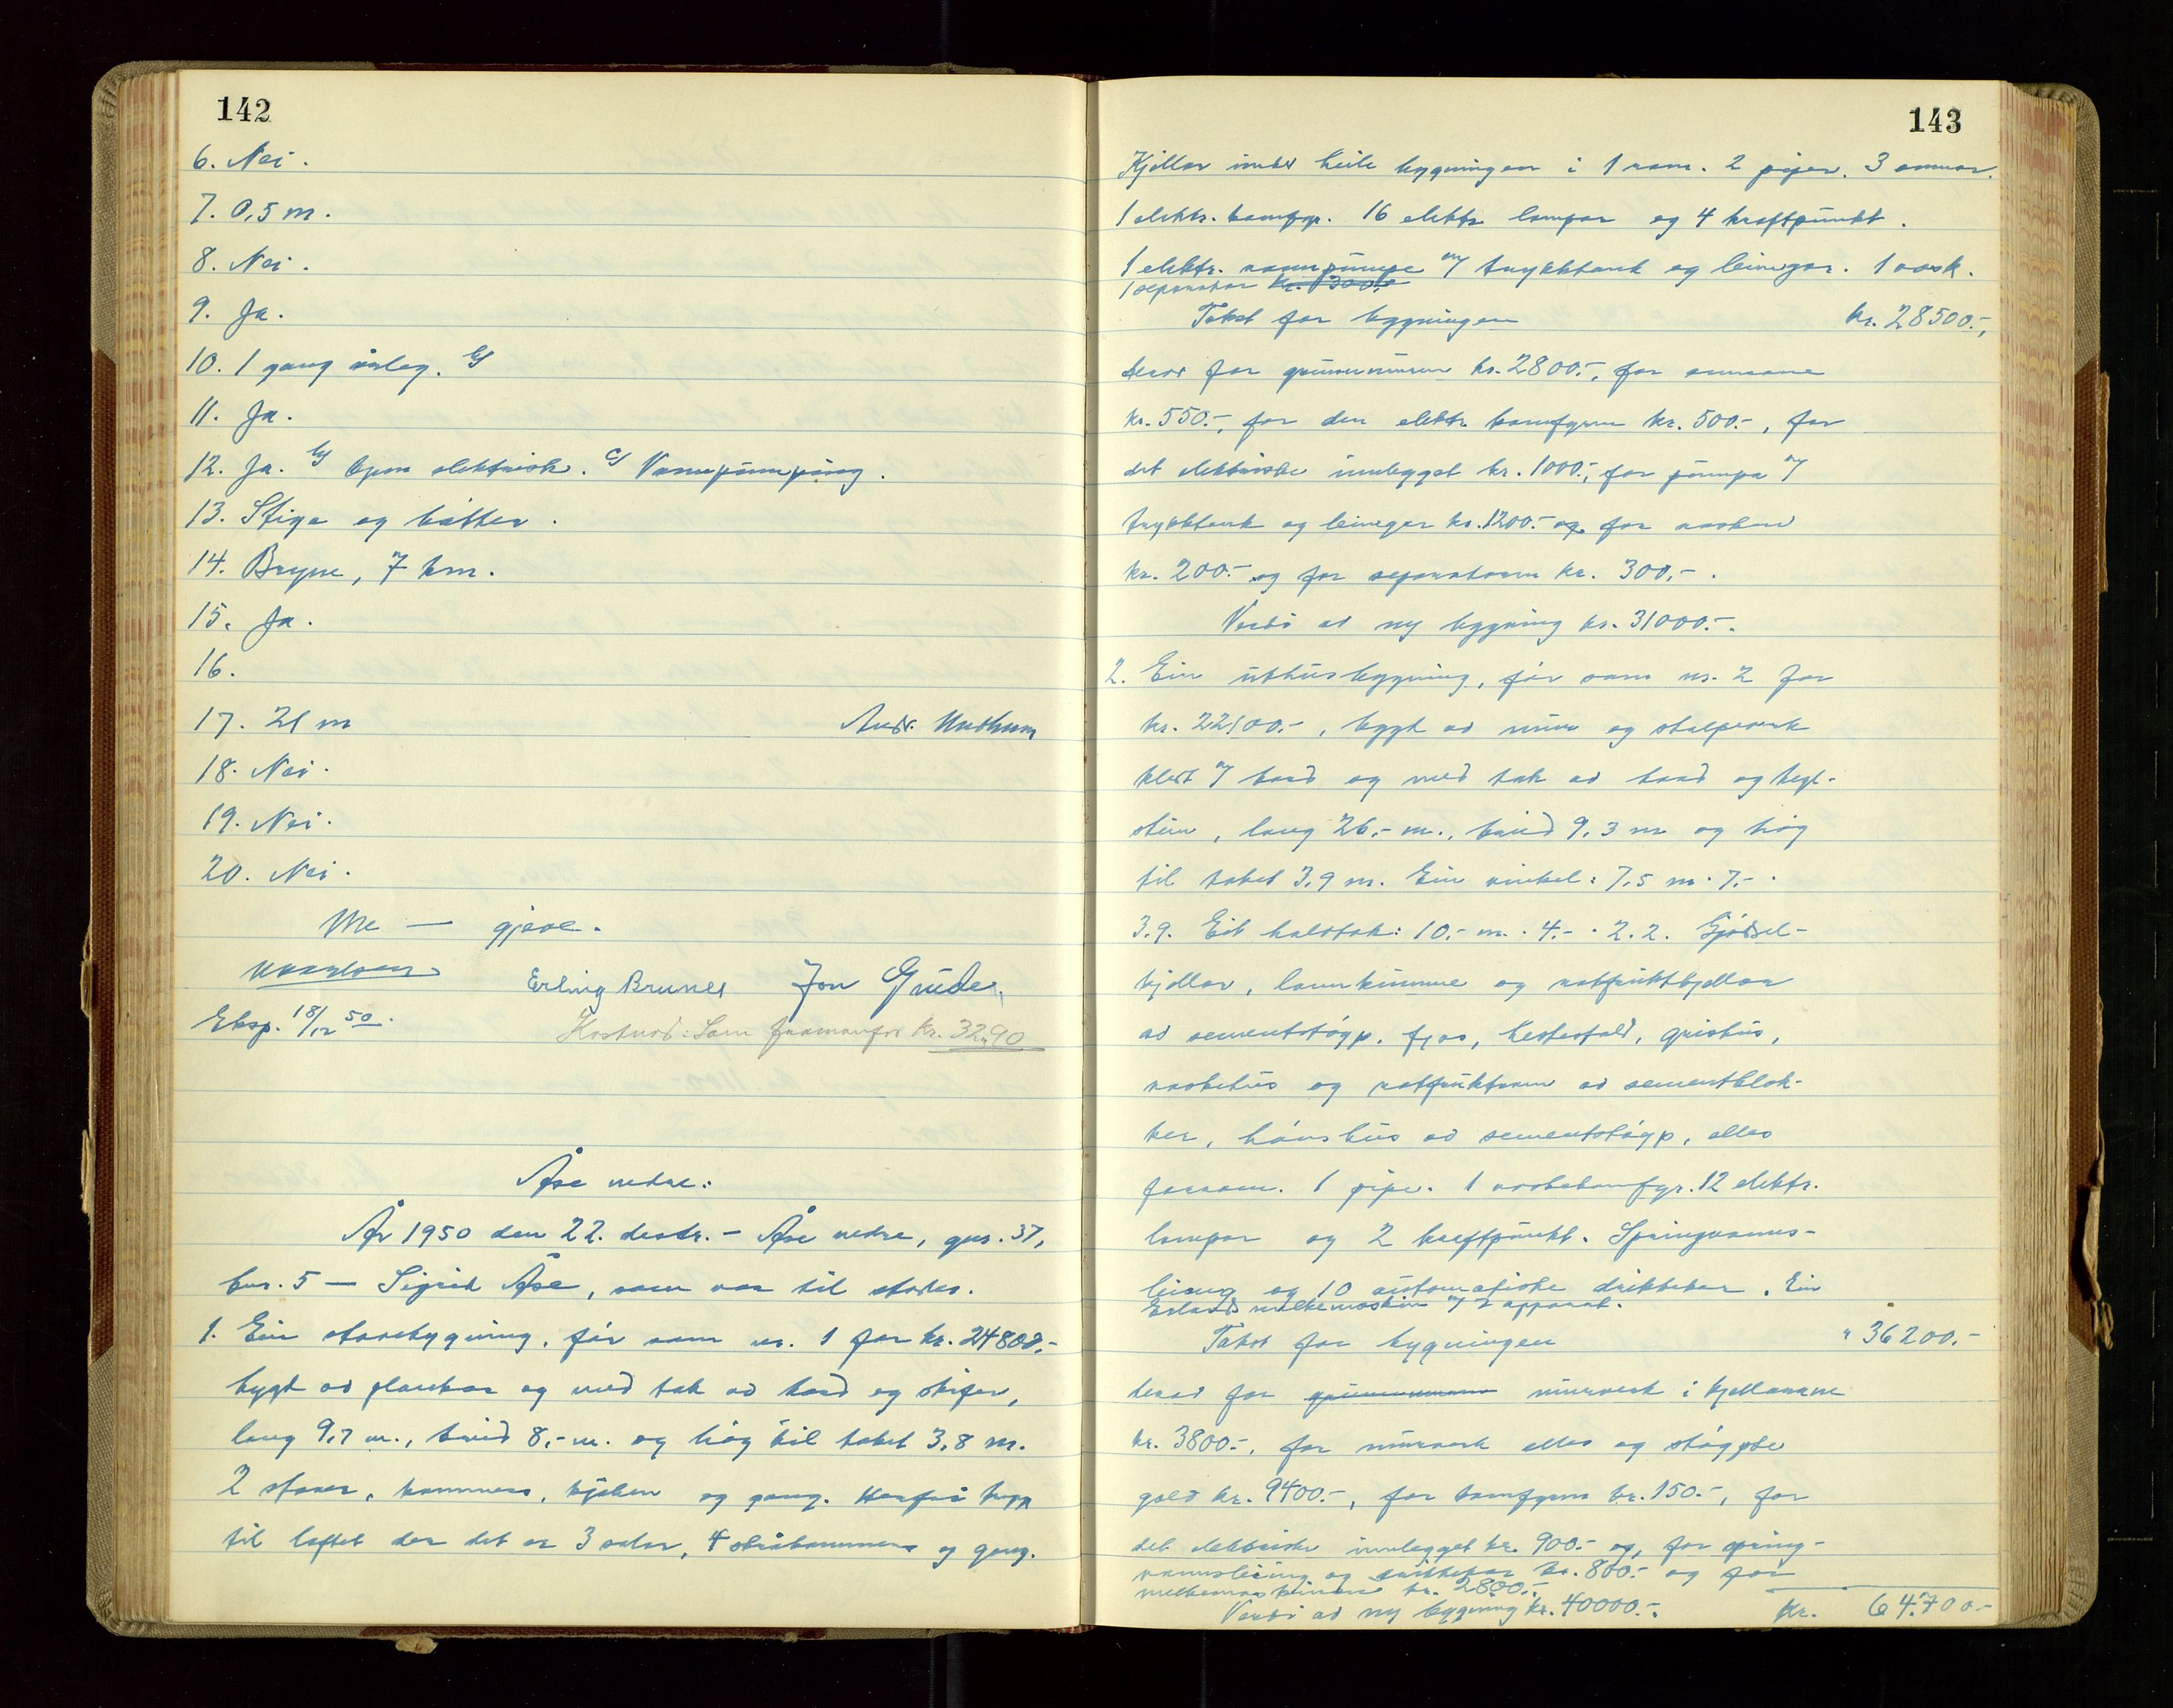 142
6. Nei.
7. 0,5 m.
8. Nei.
9. Ja.
10. 1 gang årleg. b/
11. Ja.
12. Ja. b/ Open elektrisk. c/ Vasspumping.
13. Stige og bøtter.
14. Bryne, 7 km.
15. Ja.
16.
17. 21 m Andr.
18. Nei.
19. Nei.
20. Nei.
Me — gjeve.
Erling Brunes Jon Gude.
Eksp. 18/12 50.
Kostnad: Som framanfor kr. 32,90
Åse nedre:
År 1950 den 22. desbr. – Åse nedre, gnr. 37,
bnr. 5 — Sigrid Åse, som var til stades.
1. Ein stovebygning, før som nr. 1 for kr. 24800,-
bygt av plankar og med tak av bord og skifer,
lang 9,7 m., breid 8,- m. og høg til taket 3,8 m.
2 stover, kammers, kjøken og gang. Herfrå trapp
til loftet der det er 3 salar, 4 skråkammers og gang.
143
Kjellar under heile bygningen i 1 rom. 2 piper. 3 omnar.
1 elektr. komfyr. 16 elektr. lampar og 4 kraftpunkt.
1 elektr. vasspumpe m/ trykktank og leingar. 1 vask.
1 separator kr. 300,-
Takst for bygningen kr. 28500.-,
derav for grunnmuren kr. 2800.-, for omnane
kr. 550.-, for den elektr. komfyren kr. 500.-, for
det elektriske innlegget kr. 1000.-, for pumpa m/
trykktank og leingar kr. 1200.- og for vasken
kr. 200.- og for separatoren kr. 300,-.
Verdi av ny bygning kr. 31000.-.
2. Ein uthusbygning, før som nr. 2 for
kr. 22100.-, bygt av mur og stolpeverk
kledt m/ bord og med tak av bord og tegl-
stein, lang 26,- m., breid 9,3 m og høg
til taket 3,9 m. Ein vinkel: 7,5 m · 7,- ·
3,9. Eit halvtak: 10,- m. · 4,- · 2,2. Gjødsel-
kjellar, landkumme og rotfruktkjellar
av sementstøyp. fjos, hestestald, grishus,
vaskehus og rotfruktrom av sementblok-
ker, hønshus av sementstøyp, elles
forrom. 1 pipe. 1 vaskekomfyr. 12 elektr.
lampar og 2 kraftpunkt. Springvanns-
leiing og 10 automatiske drikkekar. Ein
milkemaskin m/ 2 apparat.
Takst for bygningen " 36200.-
derav for grunnmuren murverk i kjellarane
kr. 3800.-, for murverk elles og støypte
golv kr. 9400.-, for komfyren kr. 150.-, for
det elektriske innlegget kr. 900.- og, for spring-
vannsleiing og drikkekar kr. 800.- og for
milkemaskinen kr. 2800.-.
Verdi av ny bygning kr. 40000.-. Kr. 64.700-